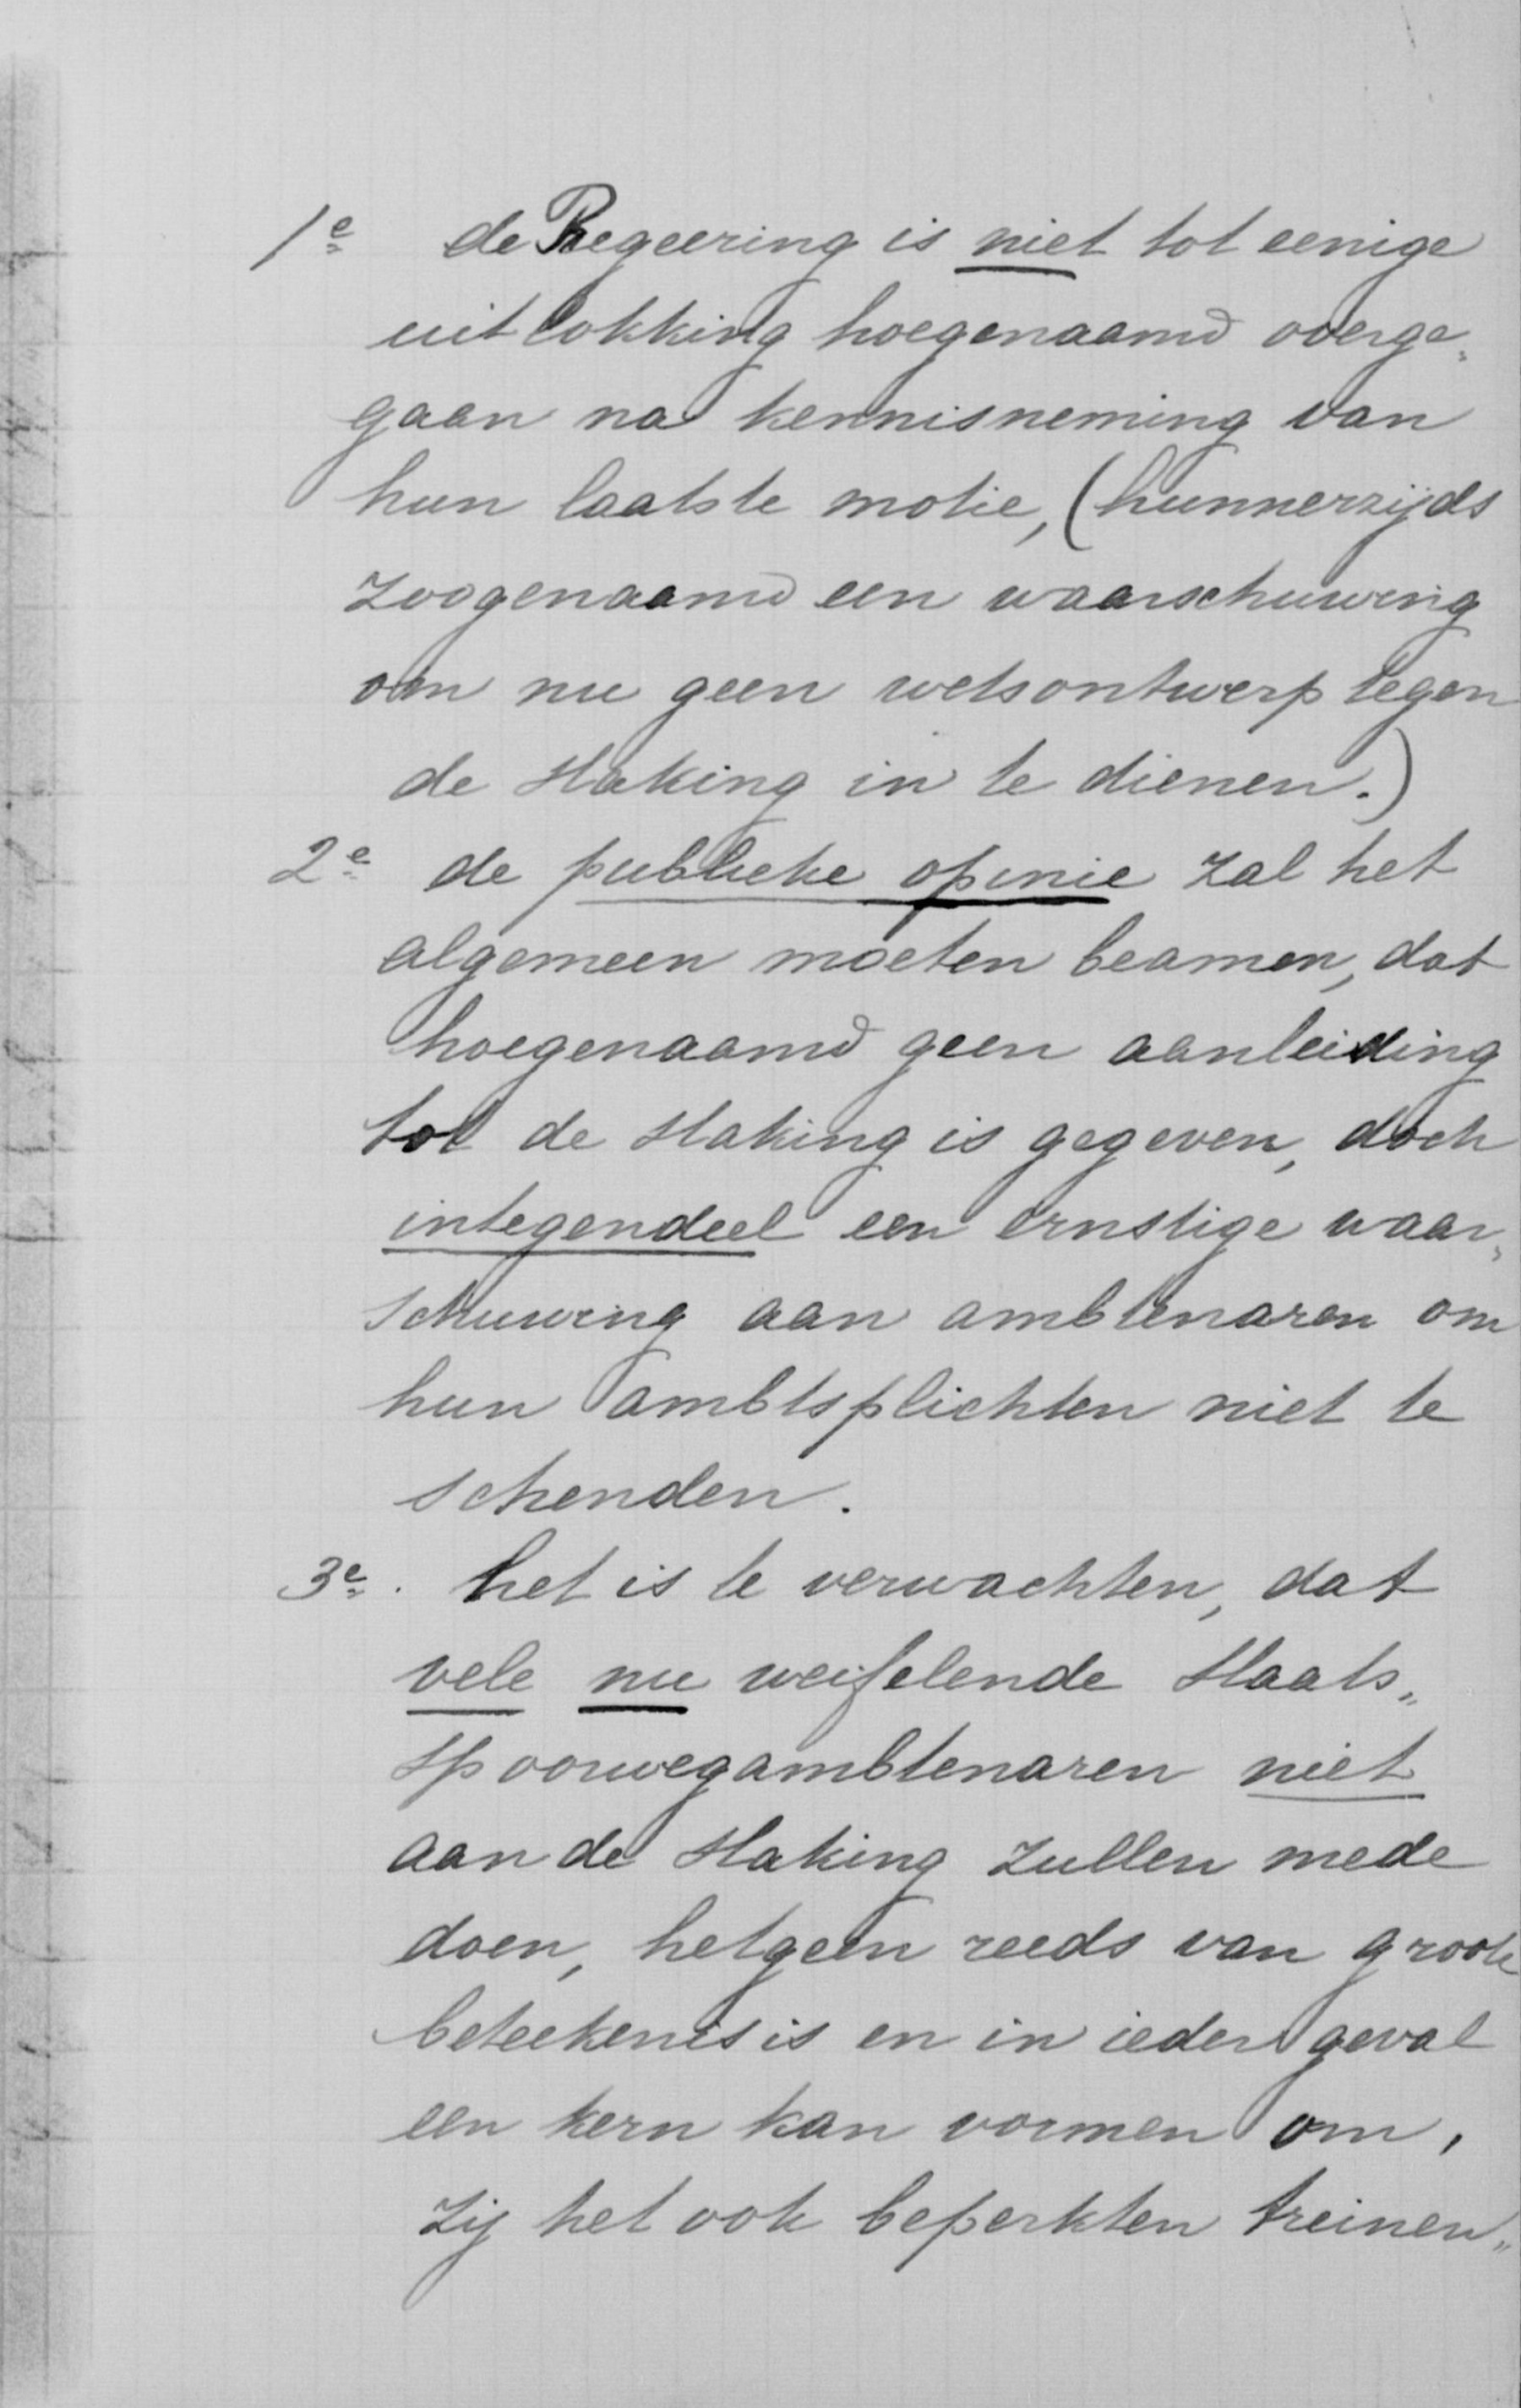 1e de Regeering is niet tot eenige
uitlokking hoegenaamd overge„
gaan na kennisneming van
hun laatste motie, (hunnerzijds
zoogenaamd een waarschuwing
om nu geen wetsontwerp tegen
de staking in te dienen.)
2e de publieke opinie zal het
algemeen moeten beamen, dat
hoegenaamd geen aanleiding
tot de staking is gegeven, doch
integendeel een ernstige waar„
schuwing aan ambtenaren om
hun ambtsplichten niet te
schenden.
3e. het is te verwachten, dat
vele nu weifelende Staats„
spoorwegambtenaren niet
aan de staking zullen mede
doen, hetgeen reeds van groote
beteekenis is en in ieder geval
een kern kan vormen om,
zij het ook beperkten treinen„